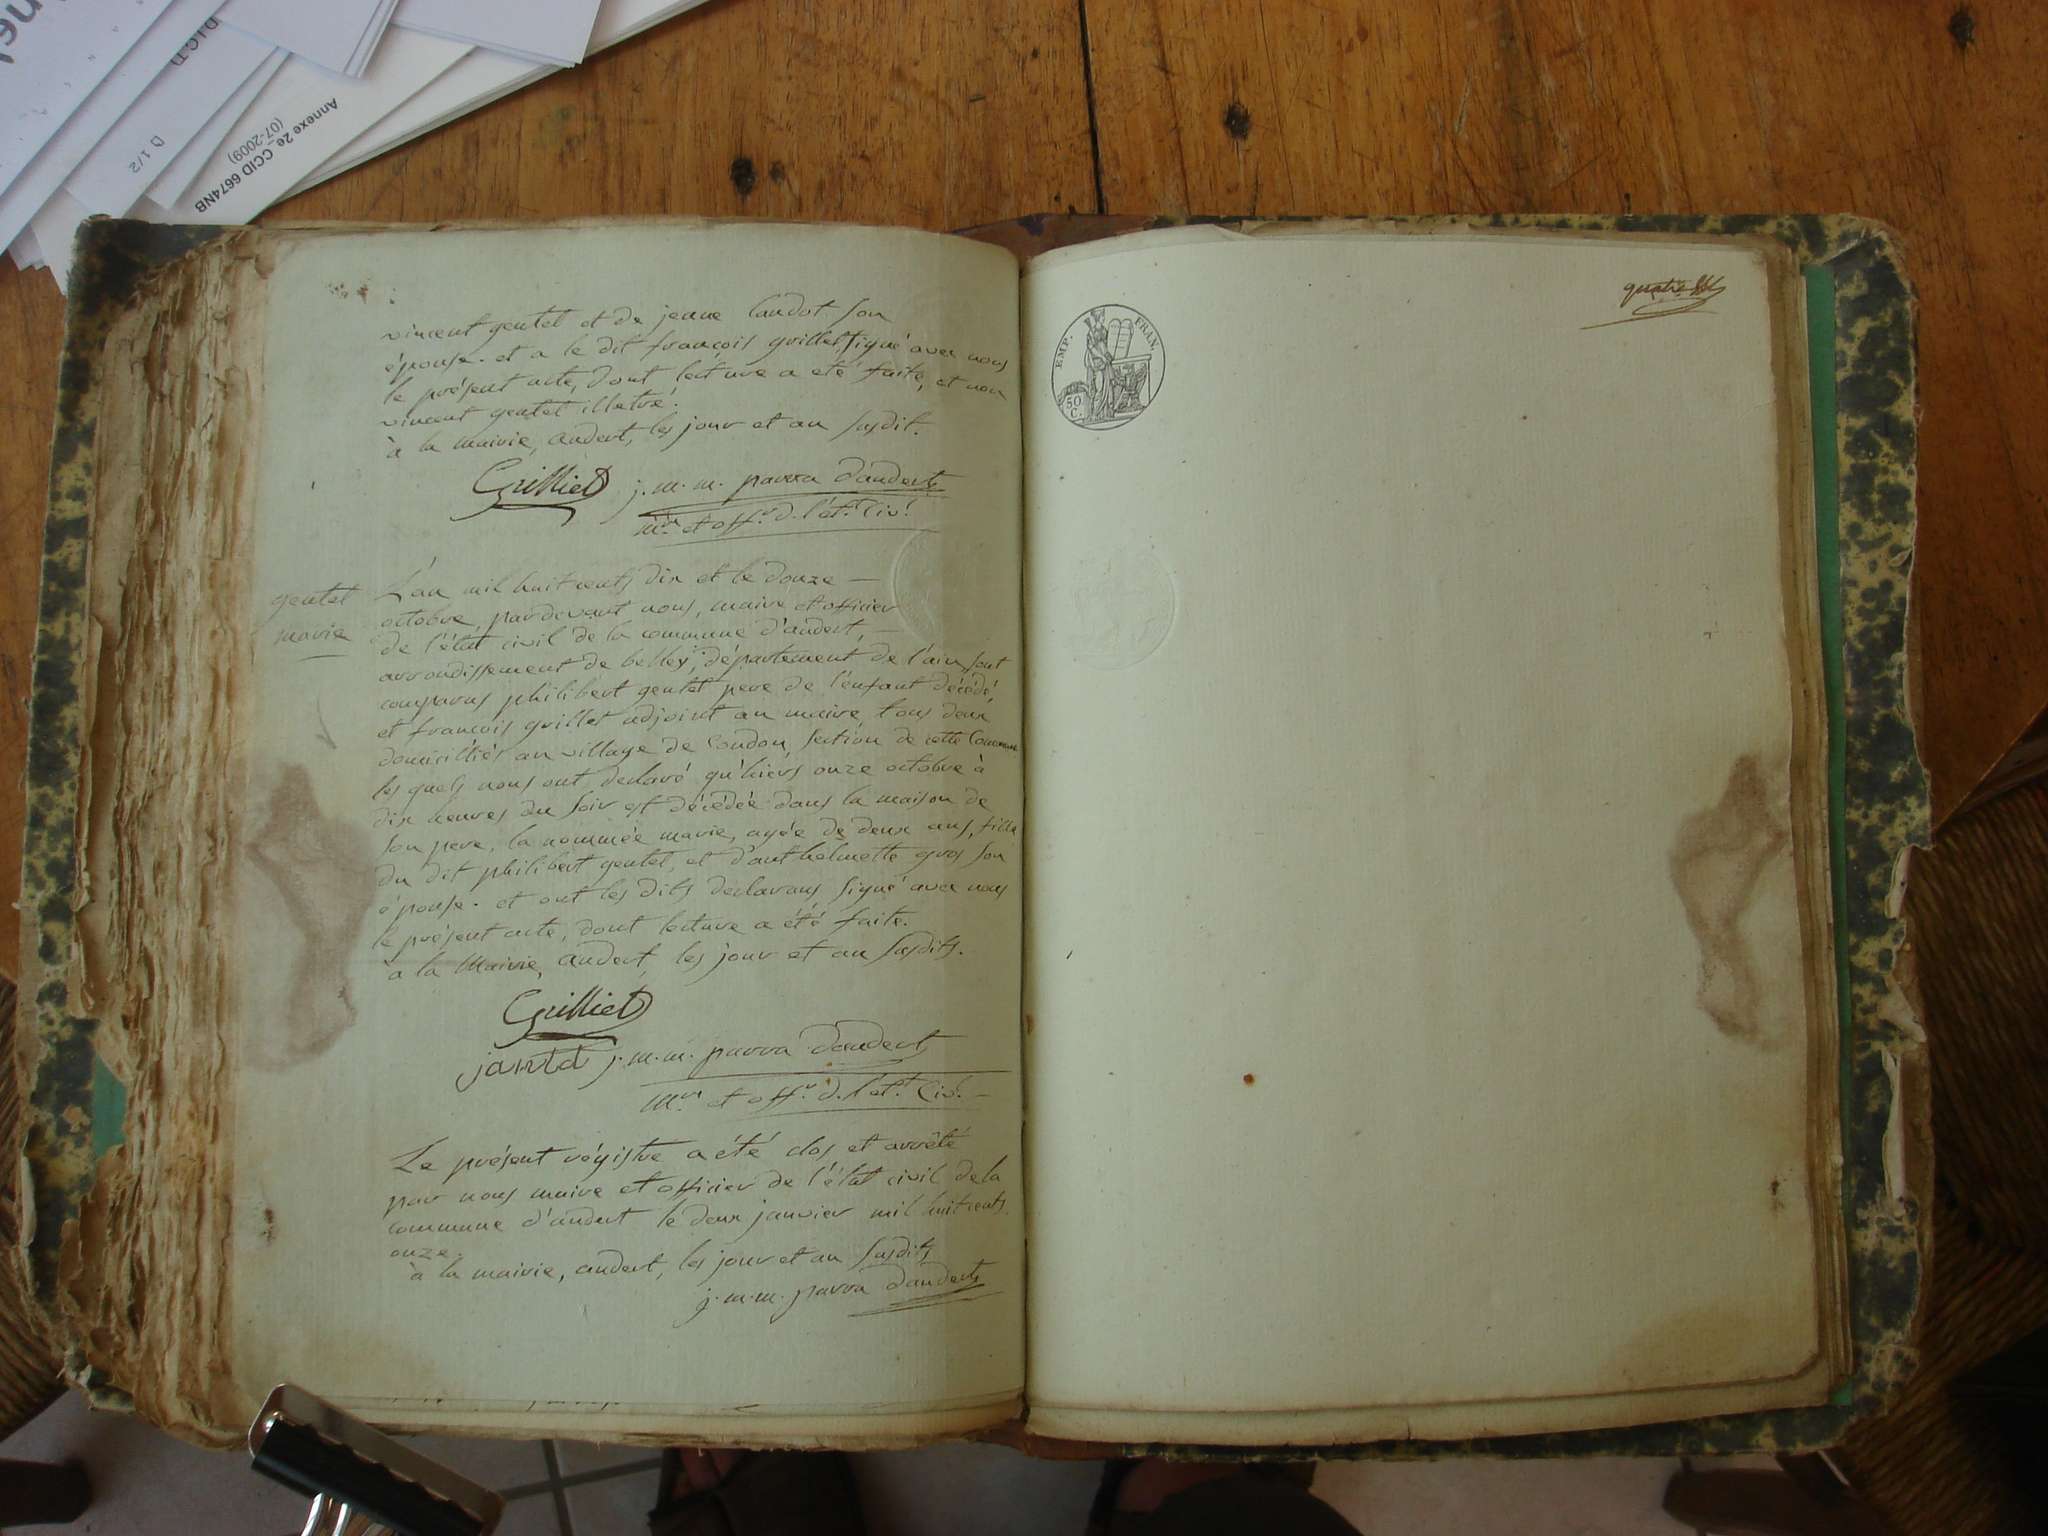 D.I.C.T
D 1/2
Annexe 2e CCID 6674NB
(07-2009)
vincent gentet et de jeane Candot son
épouse. et a le dit françois grillet signé avec nous
le présent acte, dont lecture a eté faite, et non
vincent gentet illetré.
à la mairie, andert, les jour et an susdit.
Grilliet j. m. m. parra d'andert
mre et offr d. l'ét.t civ.l
gentet
marie
L'an mil huit cents dix et le douze —
octobre, pardevant nous, maire et officier
de l'état civil de la commune d'andert, —
arrondissement de belley, département de l'ain, sont
comparus philibert gentet pere de l'enfant décédé,
et françois grillet adjoint au maire, tous deux
domiciliés au village de condon, section de cette commune
les quels nous ont declaré qu'hiers onze octobre à
dix heures du soir est décédée dans la maison de
son pere, la nommée marie, agée de deux ans, fille
du dit philibert gentet, et d'anthelmette gros son
épouse. et ont les dits declarans signé avec nous
le présent acte, dont lecture a été faite.
à la Mairie, andert, les jour et an susdits.
Grilliet
jantet j. m. m. parra d'andert
Mre et offr. d. l'ét.t civ.l —
Le présent régistre a été clos et arrêté
par nous maire et officier de l'état civil de la
commune d'andert le deux janvier mil huit cents
onze.
à la mairie, andert, les jour et an susdits
j. m. m. parra d'andert
EMP. FRAN.
50
C.